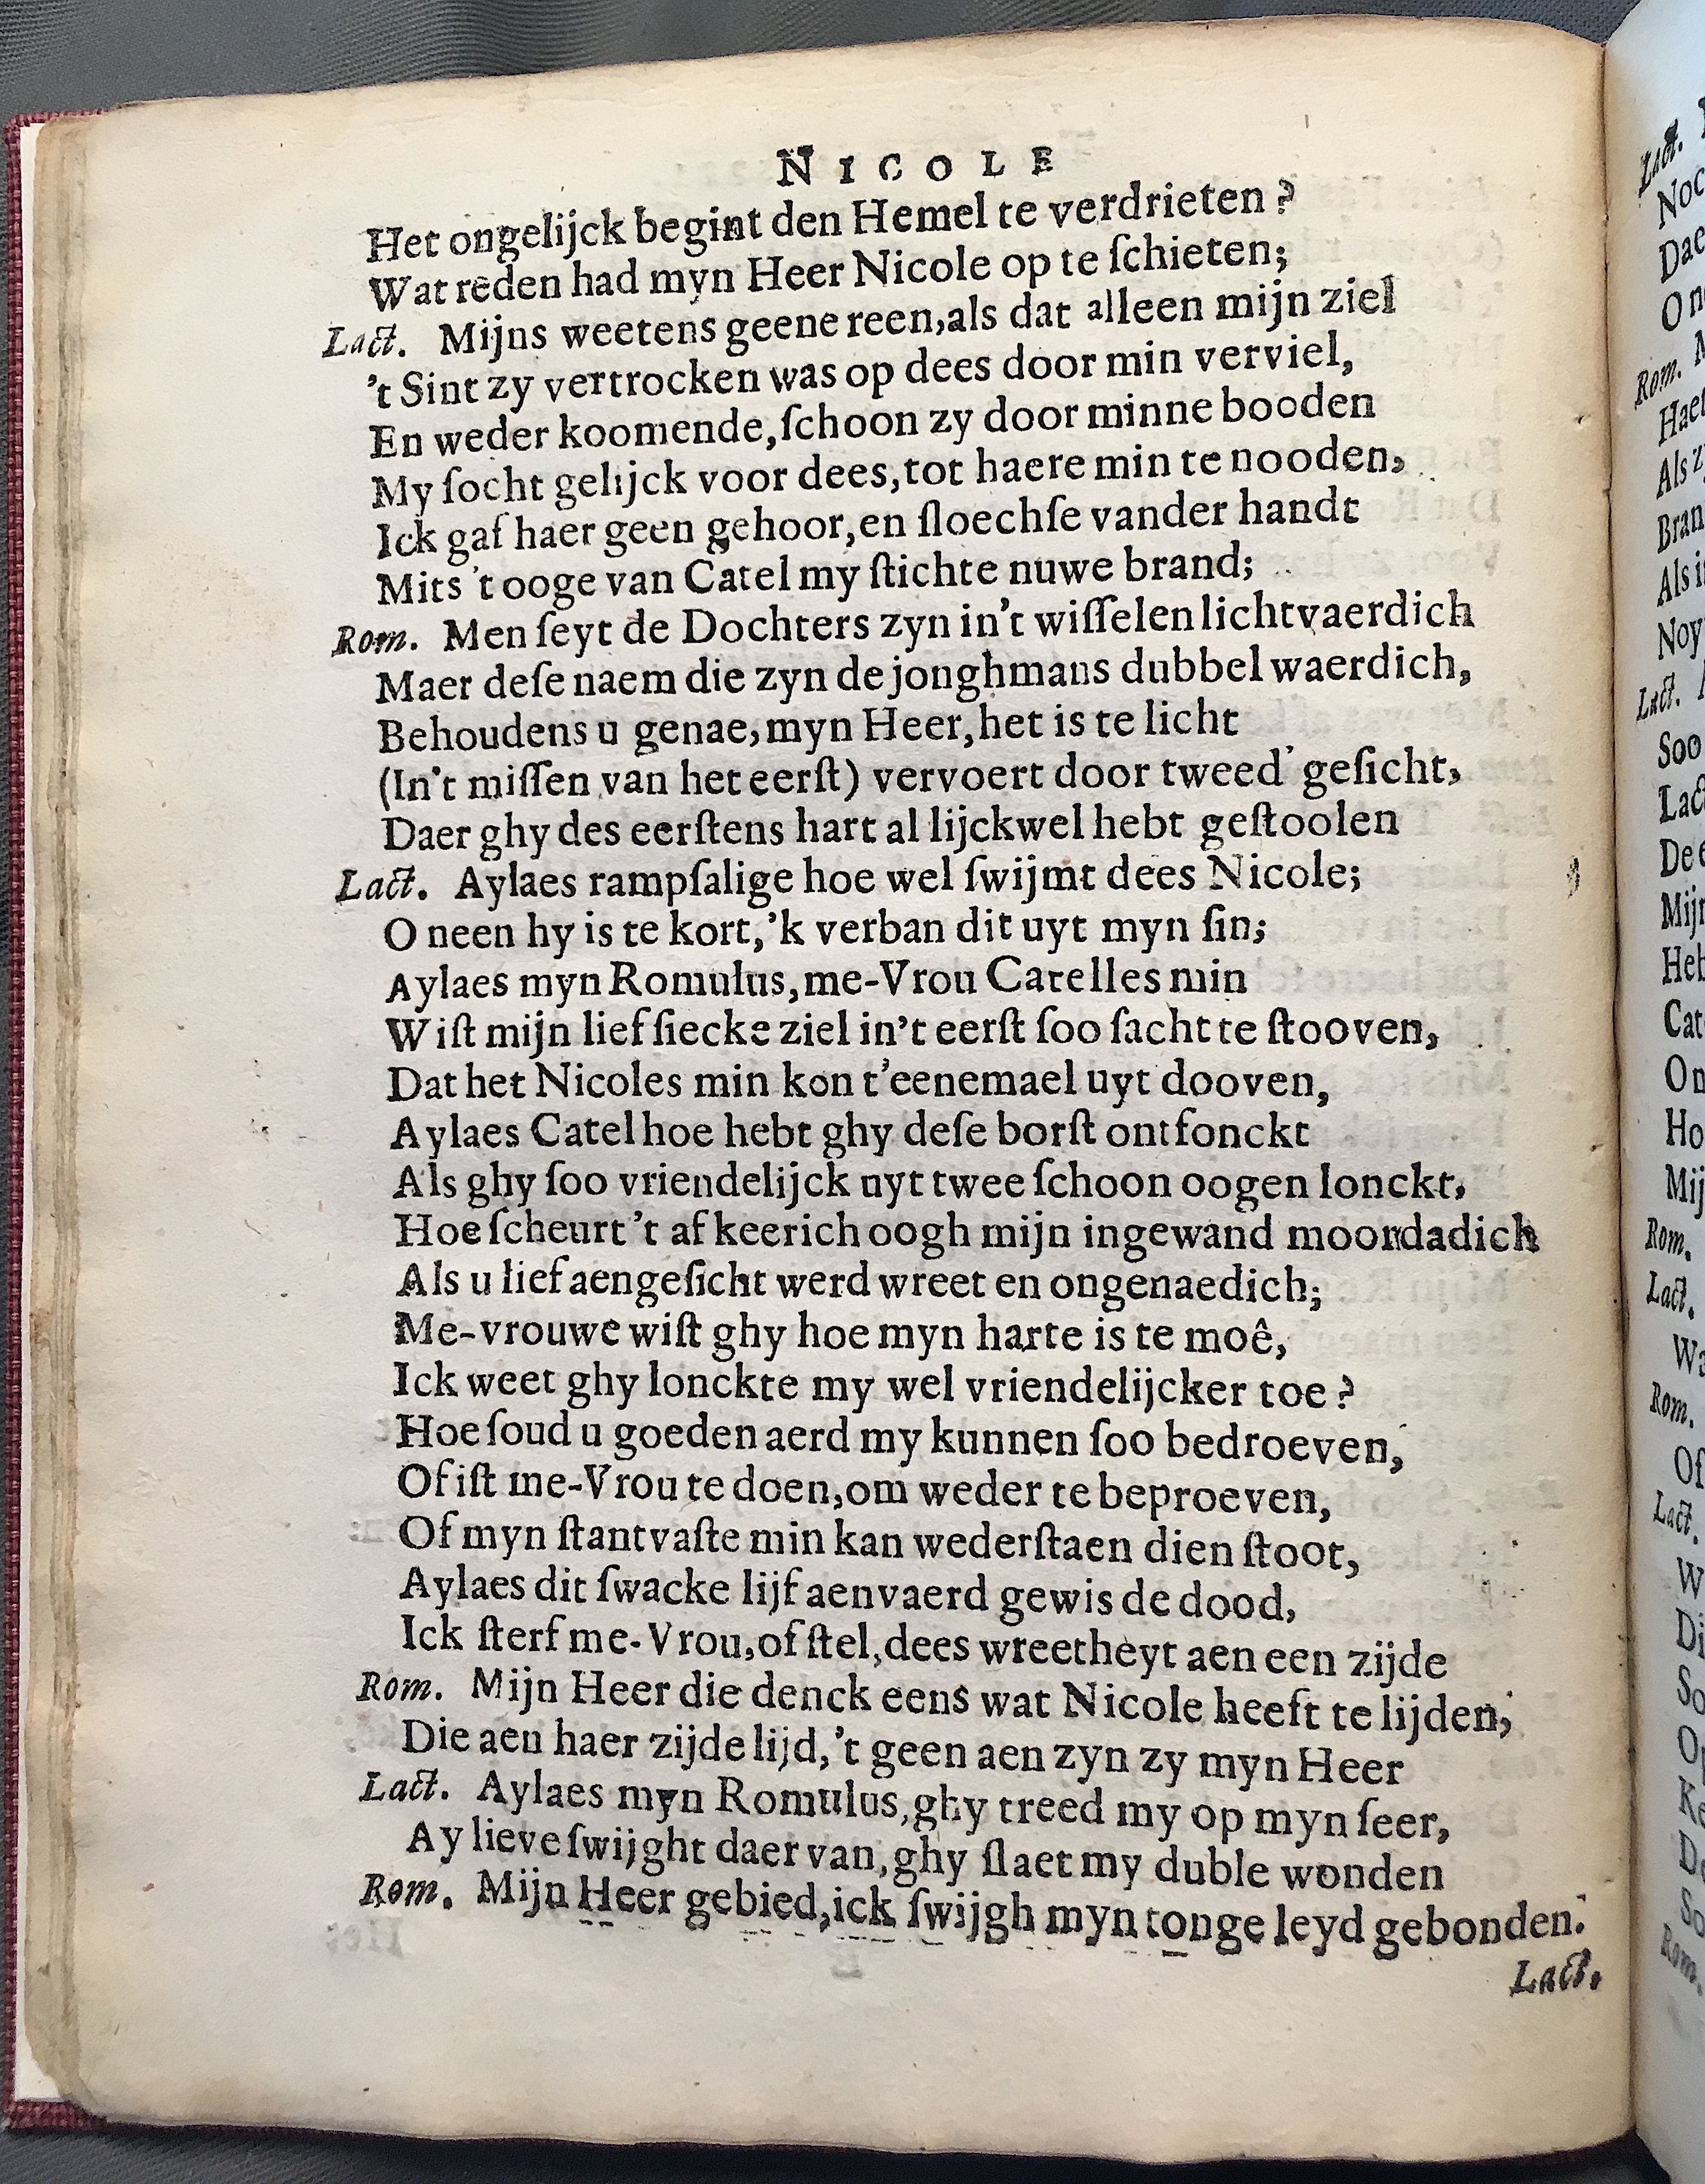 NICOLE
Het ongelijck begint den Hemel te verdrieten?
Wat rêden had myn Heer Nicole op te ſchieten;
Lact. Mijns weetens geene reen, als dat alleen mijn ziel
't Sint zy vertrocken was op dees door min verviel,
En weder koomende, ſchoon zy door minne booden
My ſocht gelijck voor dees, tot haere min te nooden,
Ick gaf haer geen gehoor, en ſloechſe vander handt
Mits 't ooge van Catel my ſtichte nuwe brand;
Rom. Men ſeyt de Dochters zyn in't wiſſelen lichtvaerdich
Maer deſe naem die zyn de jonghmans dubbel waerdich,
Behoudens u genae, myn Heer, het is te licht
(In't miſſen van het eerſt) vervoert door tweed' geſicht,
Daer ghy des eerſtens hart al lijckwel hebt geſtoolen
Lact. Aylaes rampſalige hoe wel ſwijmt dees Nicole;
O neen hy is te kort, 'k verban dit uyt myn ſin;
Aylaes myn Romulus, me-Vrou Catelles min
Wiſt mijn lief ſiecke ziel in't eerſt ſoo ſacht te ſtooven,
Dat het Nicoles min kon t'eenemael uyt dooven,
Aylaes Catel hoe hebt ghy deſe borſt ontfonckt
Als ghy ſoo vriendelijck uyt twee ſchoon oogen lonckt,
Hoe ſcheurt 't af keerich oogh mijn ingewand moordadich
Als u lief aengeſicht werd wreet en ongenaedich;
Me-vrouwe wiſt ghy hoe myn harte is te moê,
Ick weet ghy lonckte my wel vriendelijcker toe?
Hoe ſoud u goeden aerd my kunnen ſoo bedroeven,
Of iſt me-Vrou te doen, om weder te beproeven,
Of myn ſtantvaſte min kan wederſtaen dien ſtoot,
Aylaes dit ſwacke lijf aenvaerd gewis de dood,
Ick ſterf me-Vrou, of ſtel, dees wreetheyt aen een zijde
Rom. Mijn Heer die denck eens wat Nicole heeft te lijden;
Die aen haer zijde lijd, 't geen aen zyn zy myn Heer
Lact. Aylaes myn Romulus, ghy treed my op myn ſeer,
Ay lieve ſwijght daer van, ghy ſlaet my duble wonden
Rom. Mijn Heer gebied, ick ſwijgh myn tonge leyd gebonden.
Lact.